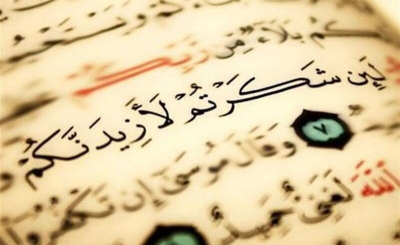 كُم بَلَاءٌ مِّن رَّبِّكُمْ
لَئِن شَكَرْتُمْ لَأَزِيدَنَّكُمْ
٧ وَقَالَ مُوسَىٰ إِن تَكْفُرُوا
اللَّهَ لَغَنِيٌّ حَمِيدٌ